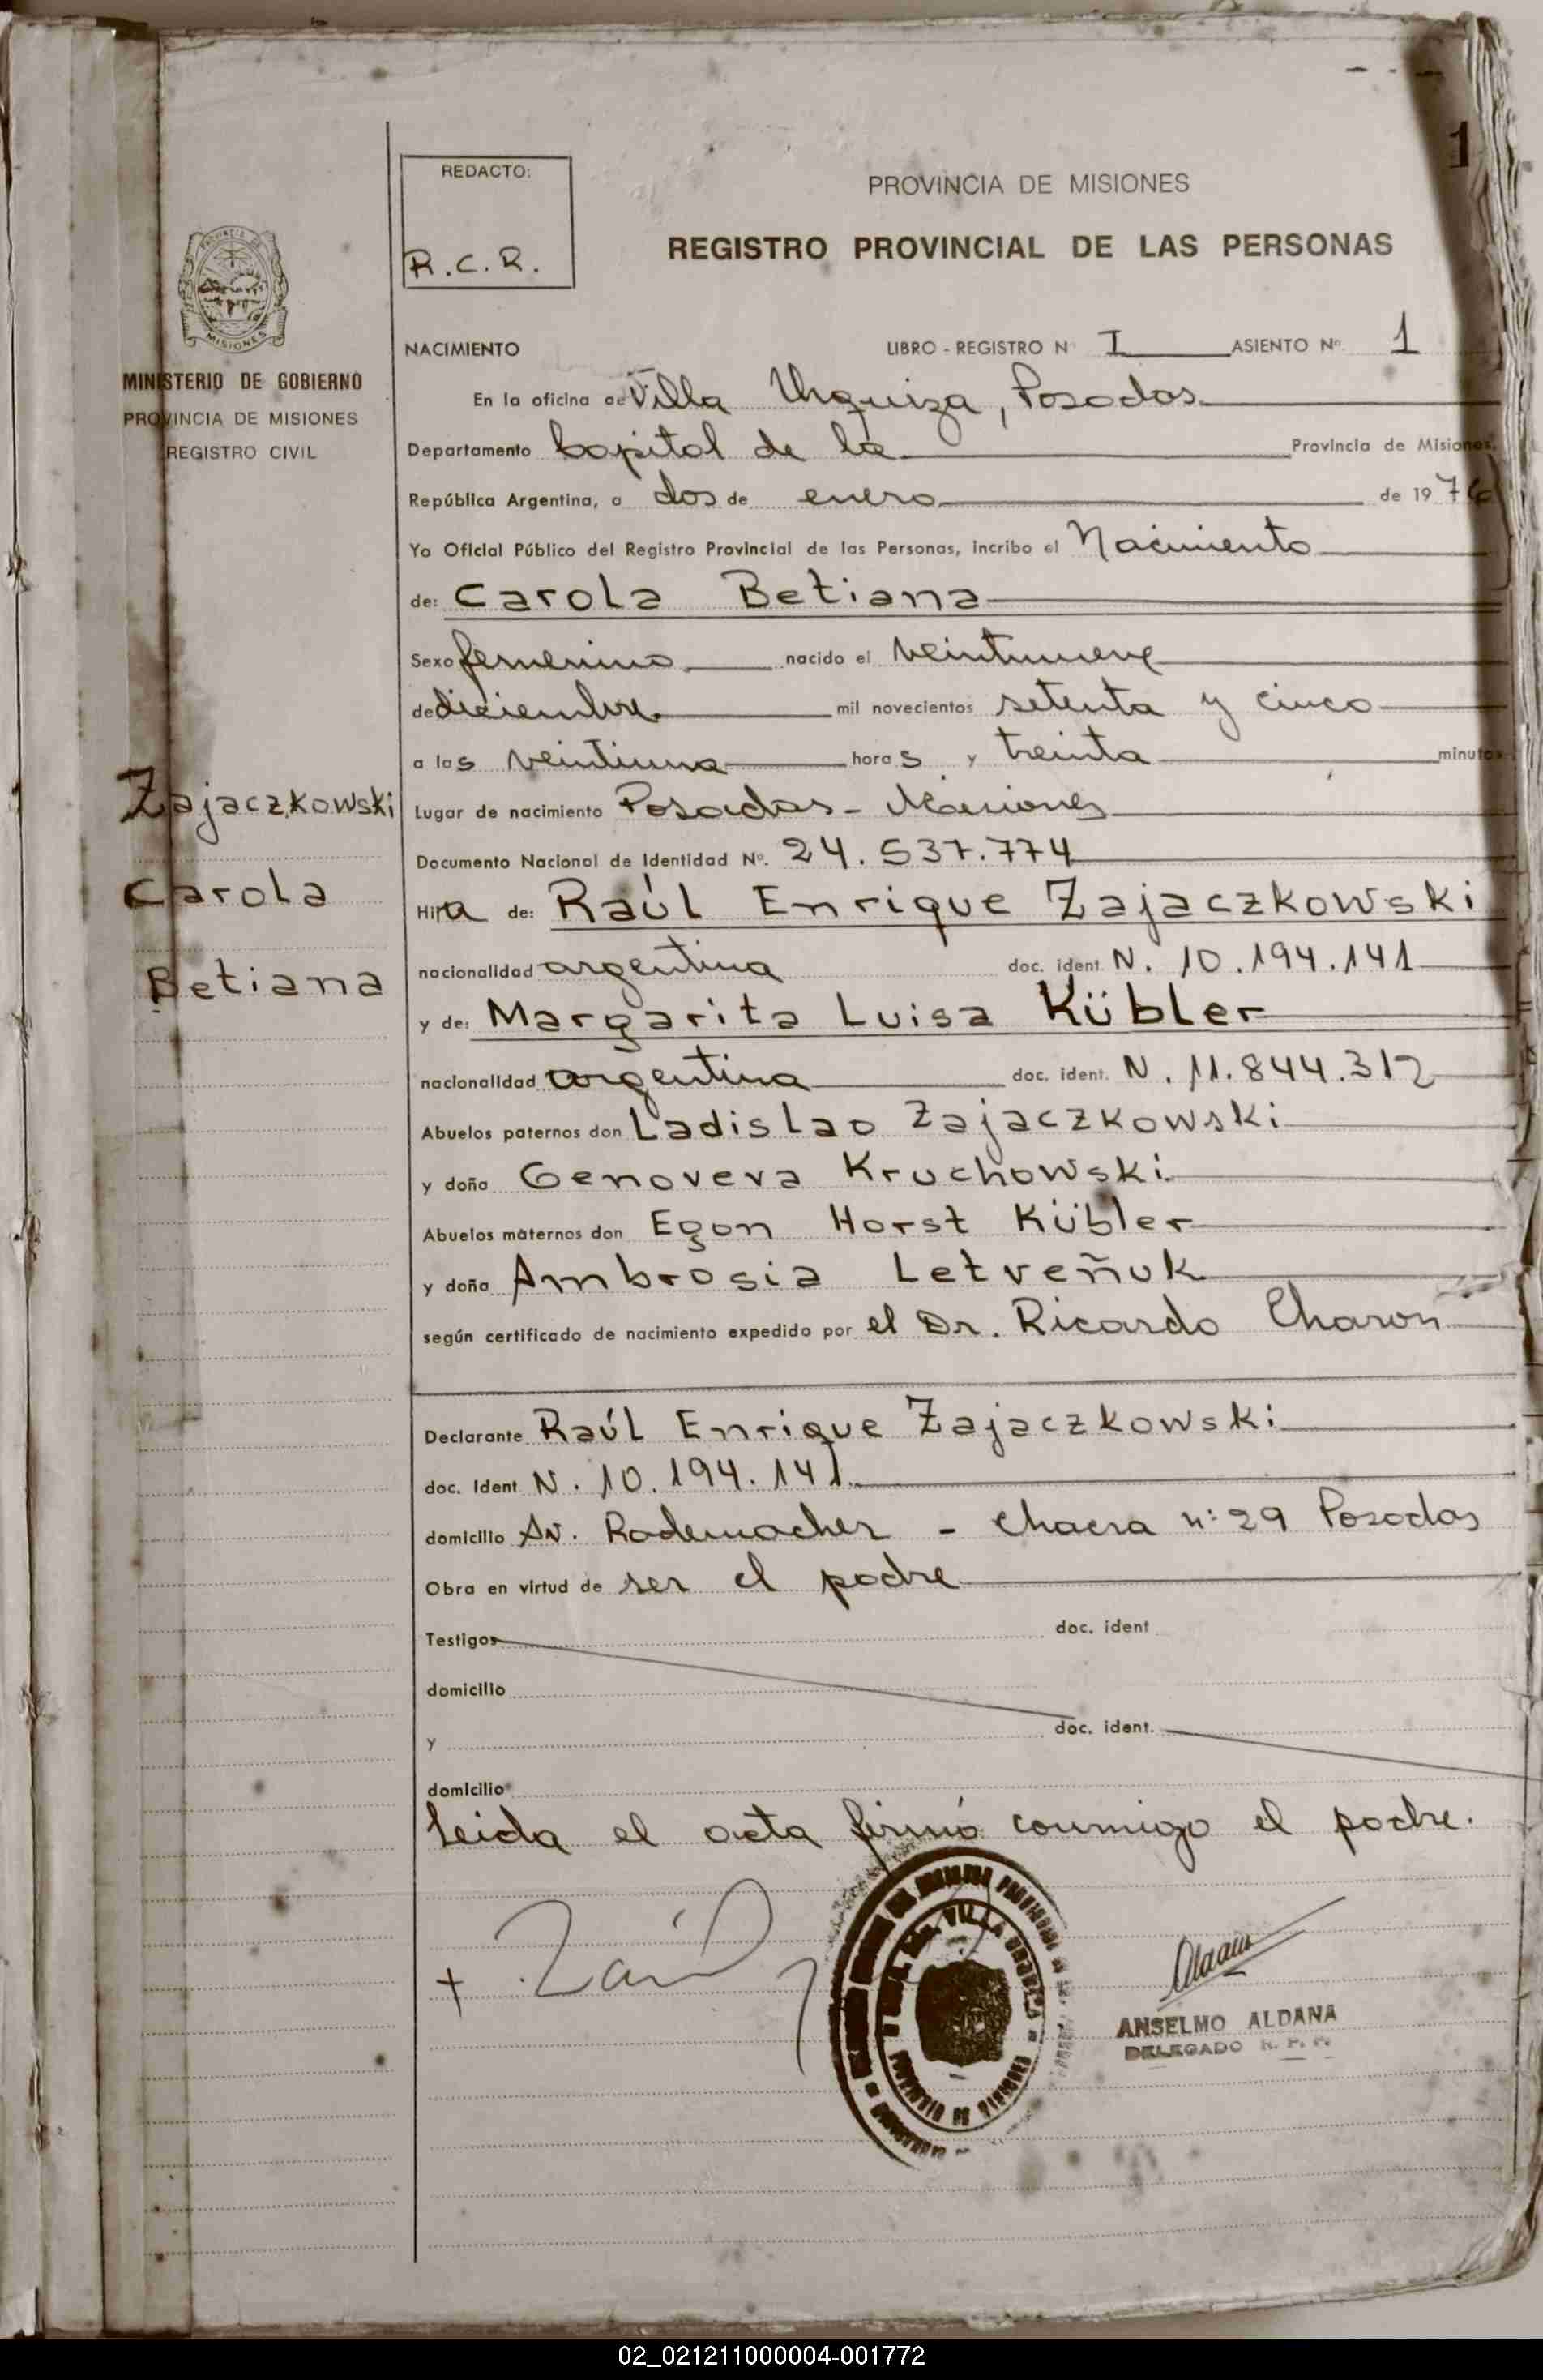 1
REDACTO:
R.C.R.
PROVINCIA DE MISIONES
REGISTRO PROVINCIAL DE LAS PERSONAS
PROVINCIA DE
MISIONES
MINISTERIO DE GOBIERNO
PROVINCIA DE MISIONES
REGISTRO CIVIL
NACIMIENTO LIBRO - REGISTRO N I ASIENTO Nº 1
En la oficina de Villa Urquiza, Posadas
Departamento Capital de la Provincia de Misiones,
República Argentina, a dos de enero de 1976
Yo Oficial Público del Registro Provincial de las Personas, incribo el Nacimiento
de: Carola Betiana
Sexo femenino nacido el veintinueve
de diciembre mil novecientos setenta y cinco
a las veintiuna horas y treinta minutos
Lugar de nacimiento Posadas - Misiones
Documento Nacional de Identidad Nº. 24.537.774
Hija de: Raúl Enrique Zajaczkowski
nacionalidad argentina doc. ident N. 10.194.141
y de: Margarita Luisa Kübler
nacionalidad argentina doc. ident. N. 11.844.312
Abuelos paternos don Ladislao Zajaczkowski
y doña Genoveva Kruchowski
Abuelos maternos don Egon Horst Kübler
y doña Ambrosia Letveñuk
según certificado de nacimiento expedido por el Dr. Ricardo Charon
Zajaczkowski
Carola
Betiana
Declarante Raúl Enrique Zajaczkowski
doc. Ident N. 10.194.141.
domicilio Av. Rademacher - Chacra nº 29 Posadas
Obra en virtud de ser el padre
Testigos doc. ident
domicilio
y doc. ident.
domicilio
Leida el acta firmó conmigo el padre.
VILLA URQUIZA
PROVINCIA DE MISIONES
ANSELMO ALDANA
DELEGADO R. P. P.
02_021211000004-001772